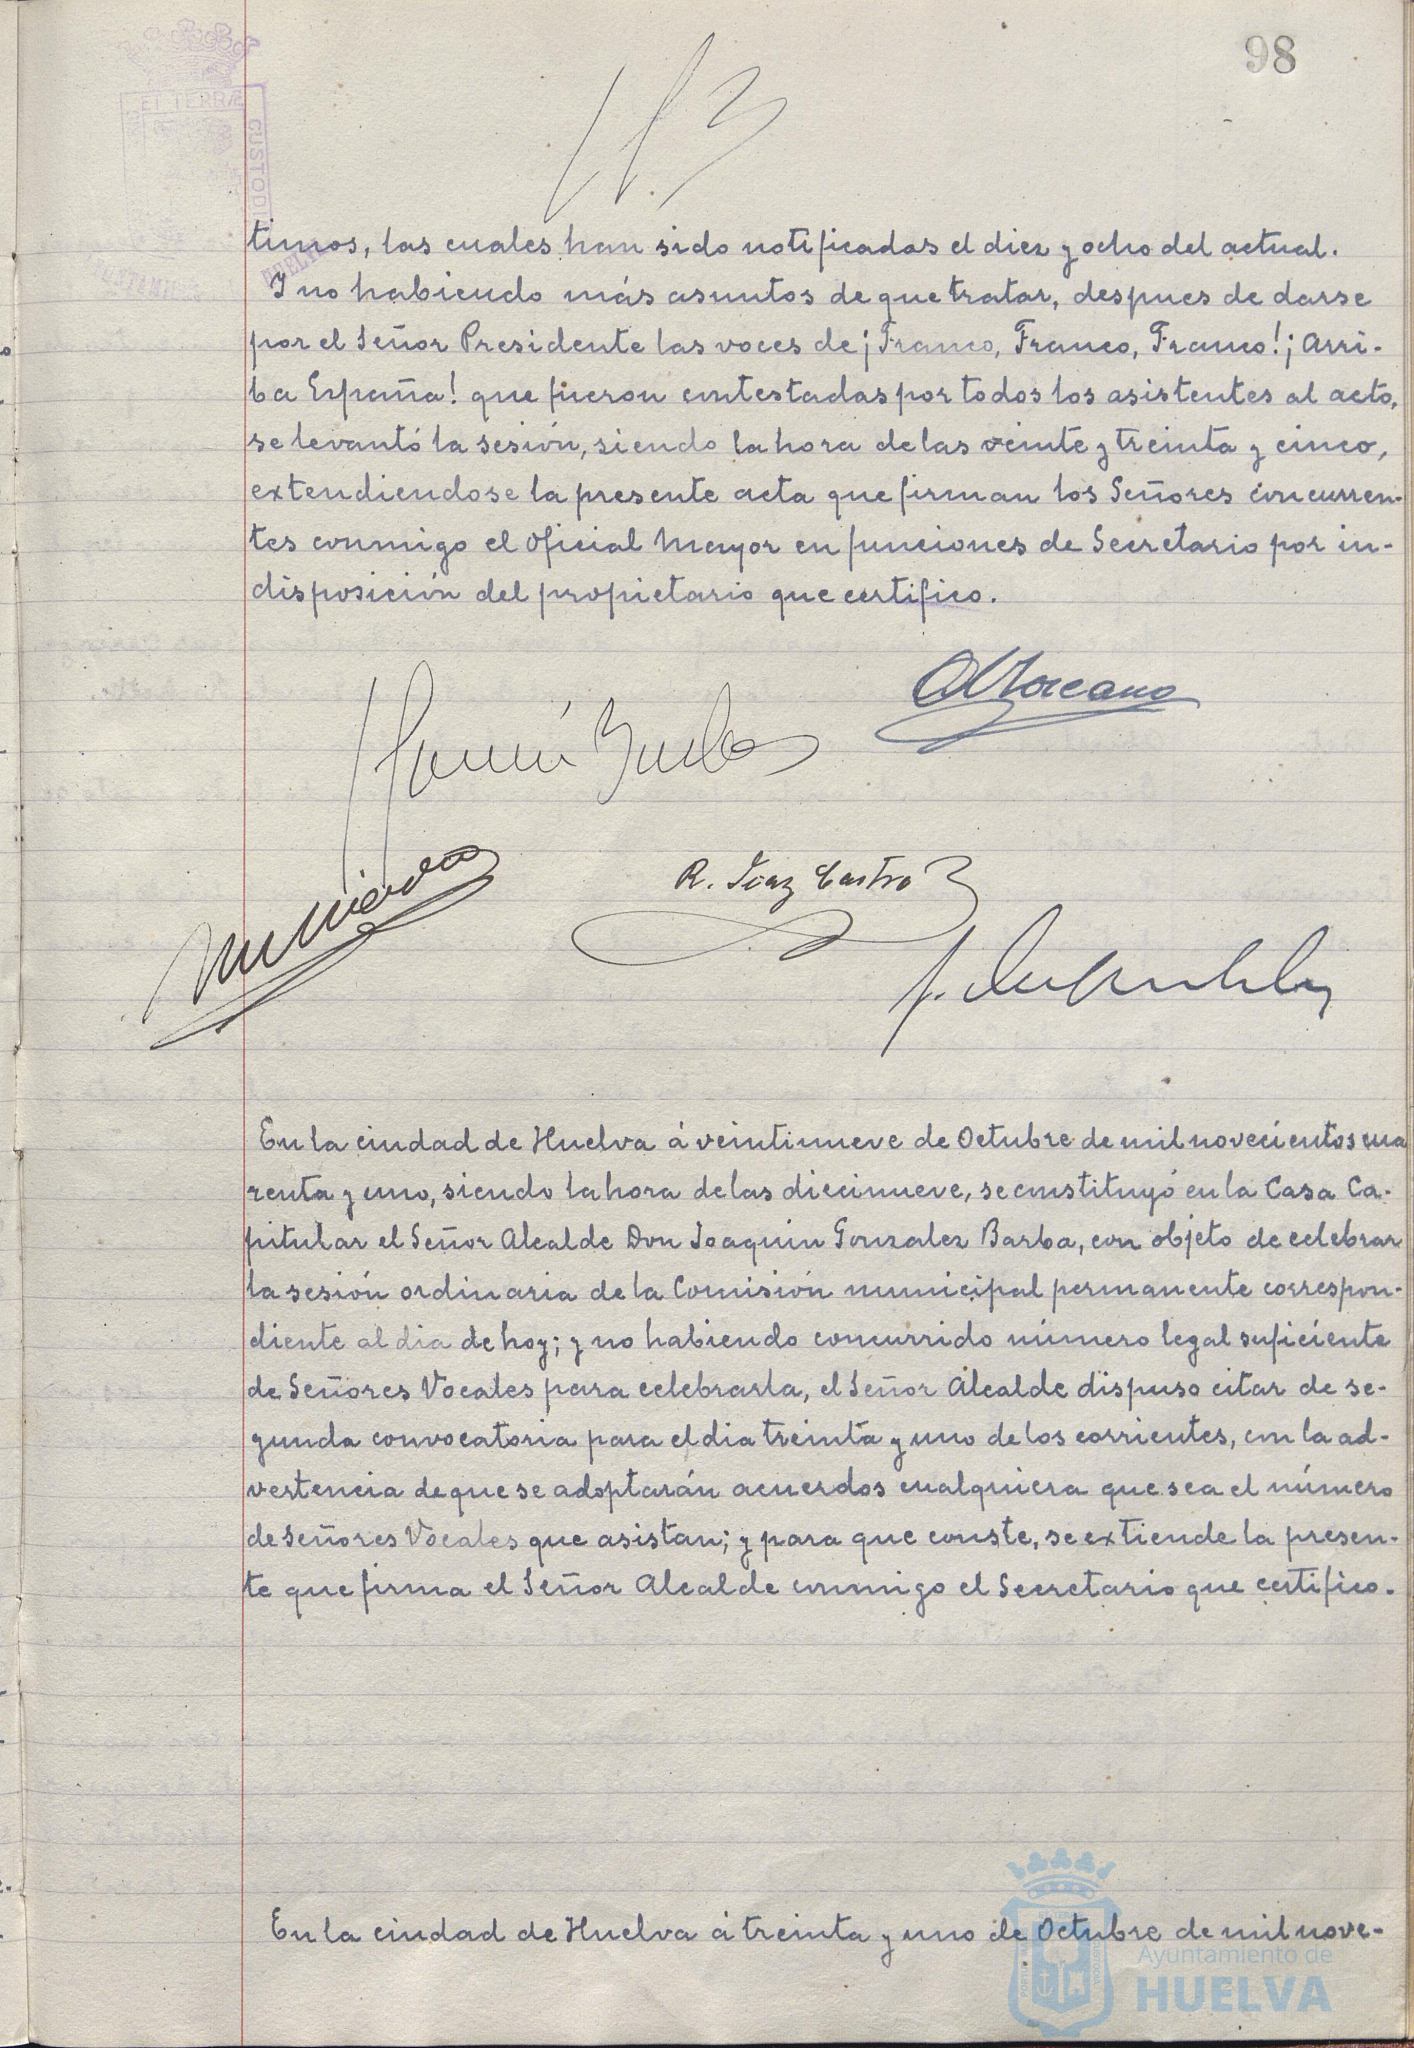 98
ET TERRÆ
CUSTODI
timos, las cuales han sido notificadas el diez y ocho del actual.
Y no habiendo más asuntos de que tratar, despues de darse
por el Señor Presidente las voces de ¡Franco, Franco, Franco! ¡Arri-
ba España! que fueron contestadas por todos los asistentes al acto,
se levantó la sesión, siendo la hora de las veinte y treinta y cinco,
extendiendose la presente acta que firman los Señores concurren-
tes conmigo el Oficial Mayor en funciones de Secretario por in-
disposición del propietario que certifico.
R. Diaz Castro
En la ciudad de Huelva á veintinueve de Octubre de mil novecientos cua
renta y uno, siendo la hora de las diecinueve, se constituyó en la Casa Ca-
pitular el Señor Alcalde Don Joaquin Gonzalez Barba, con objeto de celebrar
la sesión ordinaria de la Comisión municipal permanente correspon-
diente al dia de hoy; y no habiendo concurrido número legal suficiente
de Señores Vocales para celebrarla, el Señor Alcalde dispuso citar de se-
gunda convocatoria para el dia treinta y uno de los corrientes, con la ad-
vertencia de que se adoptarán acuerdos cualquiera que sea el número
de Señores Vocales que asistan; y para que conste, se extiende la presen-
te que firma el Señor Alcalde conmigo el Secretario que certifico.
En la ciudad de Huelva á treinta y uno de Octubre de mil nove-
Ayuntamiento de
HUELVA